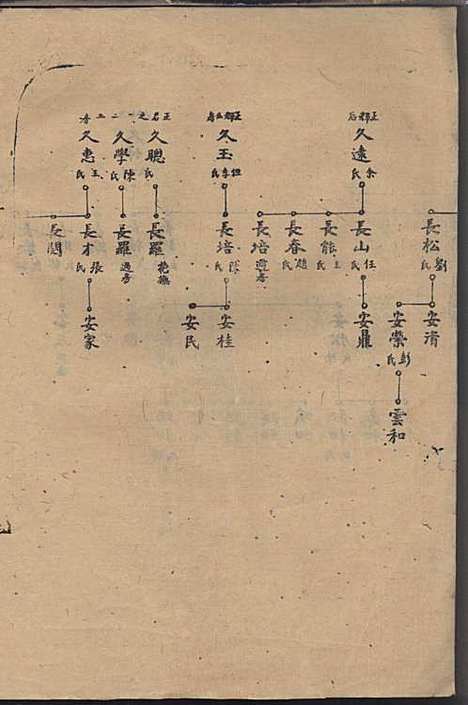 長松 劉氏
安淯
安榮 彭氏
雲和
久遠 余氏
長山 任氏
長能 王氏
長春 趙氏
長培 過房
安鼎
久玉
長培 陳氏
安桂
安民
久聰 氏
長羅 抱撫
久學 陳氏
長羅 過房
久惠 王氏
長才 張氏
長閏
安家